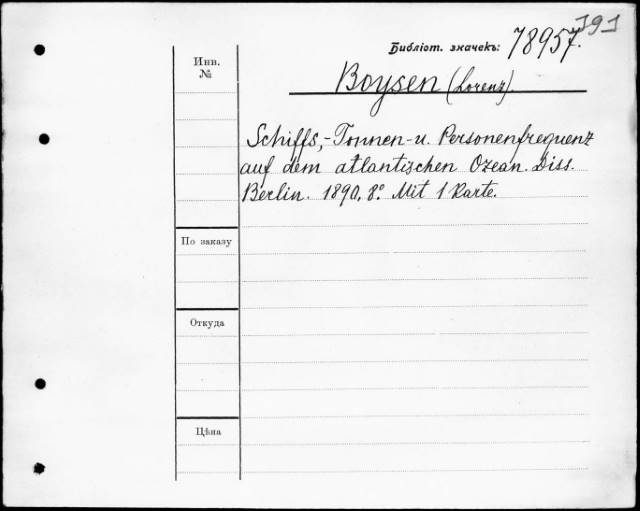 191
Библіот. значекъ: 78957.
Инв.
№
Boysen (Lorenz).
Schiffs,-Tonnen-u. Personenfrequenz
auf dem atlantischen Ozean. Diss.
Berlin. 1890. 8° Mit 1 Karte.
По заказу
Откуда
Цѣна